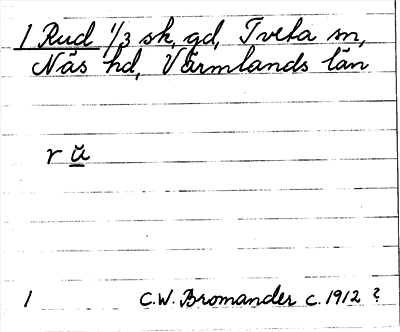 1 Rud 1/3 sk, gd, Tveta sn,
Näs hd, Värmlands län
r ŭ
1 C.W. Bromander c. 1912 ?